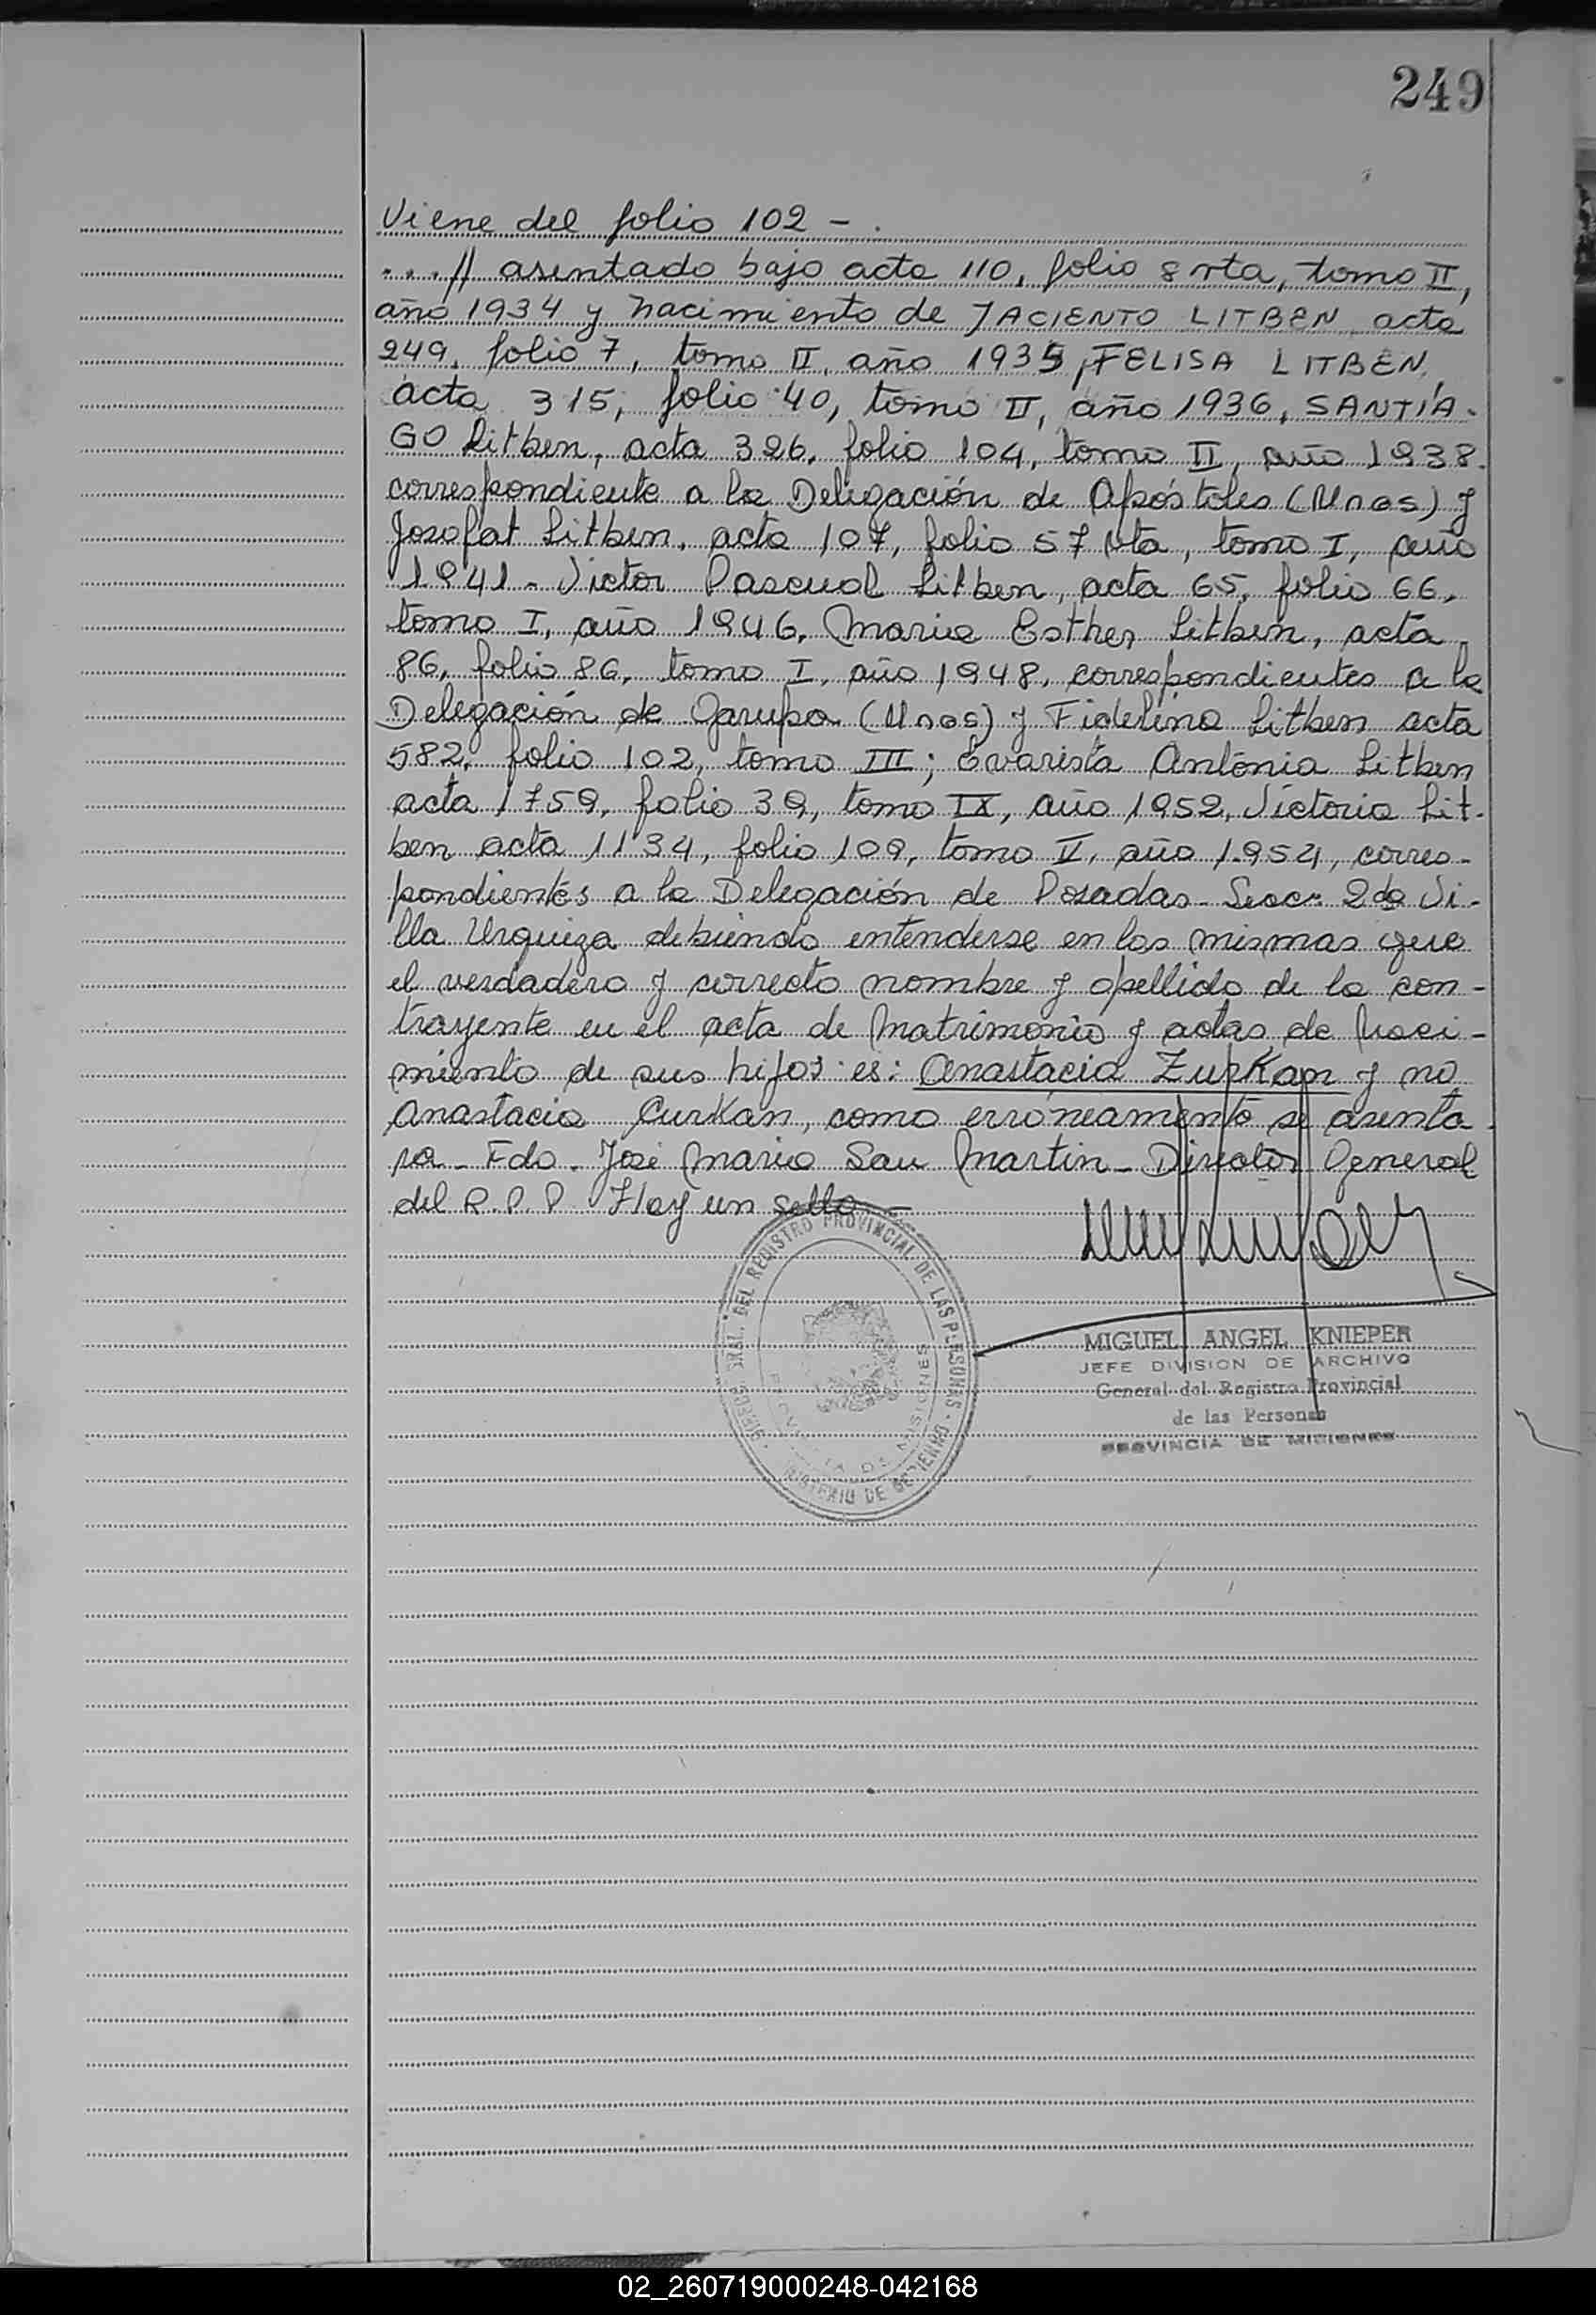 249
Viene del folio 102 - .
...// asentado bajo acta 110, folio 8 vta, tomo II,
año 1934 y nacimiento de JACIENTO LITBEN acta
249, folio 7, tomo II, año 1935, FELISA LITBEN,
acta 315, folio 40, tomo II, año 1936, SANTIA-
GO Litben, acta 326, folio 104, tomo II, año 1938.
correspondiente a la Delegación de Apóstoles (Mnes) y
Josofat Litben, acta 107, folio 57 vta, tomo I, año
1941 - Victor Pascual Litben, acta 65, folio 66,
tomo I, año 1946, Maria Esther Litben, acta
86, folio 86, tomo I, año 1948, correspondientes a la
Delegación de Garupa (Mnes) y Fidelina Litben acta
582, folio 102, tomo III; Evarista Antonia Litben
acta 1759, folio 39, tomo IX, año 1952, Victoria Lit-
ben acta 1134, folio 109, tomo V, año 1.954, corres-
pondientes a la Delegación de Posadas - Secc. 2da Vi-
lla Urquiza debiendo entenderse en las mismas que
el verdadero y correcto nombre y apellido de la con-
trayente en el acta de Matrimonio y actas de Naci-
miento de sus hijos es: Anastacia Zurkan y no
Anastacia Curkan, como erróneamente se asenta-
ra - Fdo. José Maria San Martin - Director General
del R.P.P. Hay un sello -
DIRECC. GRAL. DEL REGISTRO PROVINCIAL DE LAS PERSONAS
MINISTERIO DE GOBIERNO
PROVINCIA DE MISIONES
MIGUEL ANGEL KNIEPER
JEFE DIVISION DE ARCHIVO
General del Registro Provincial
de las Personas
PROVINCIA DE MISIONES
02_260719000248-042168